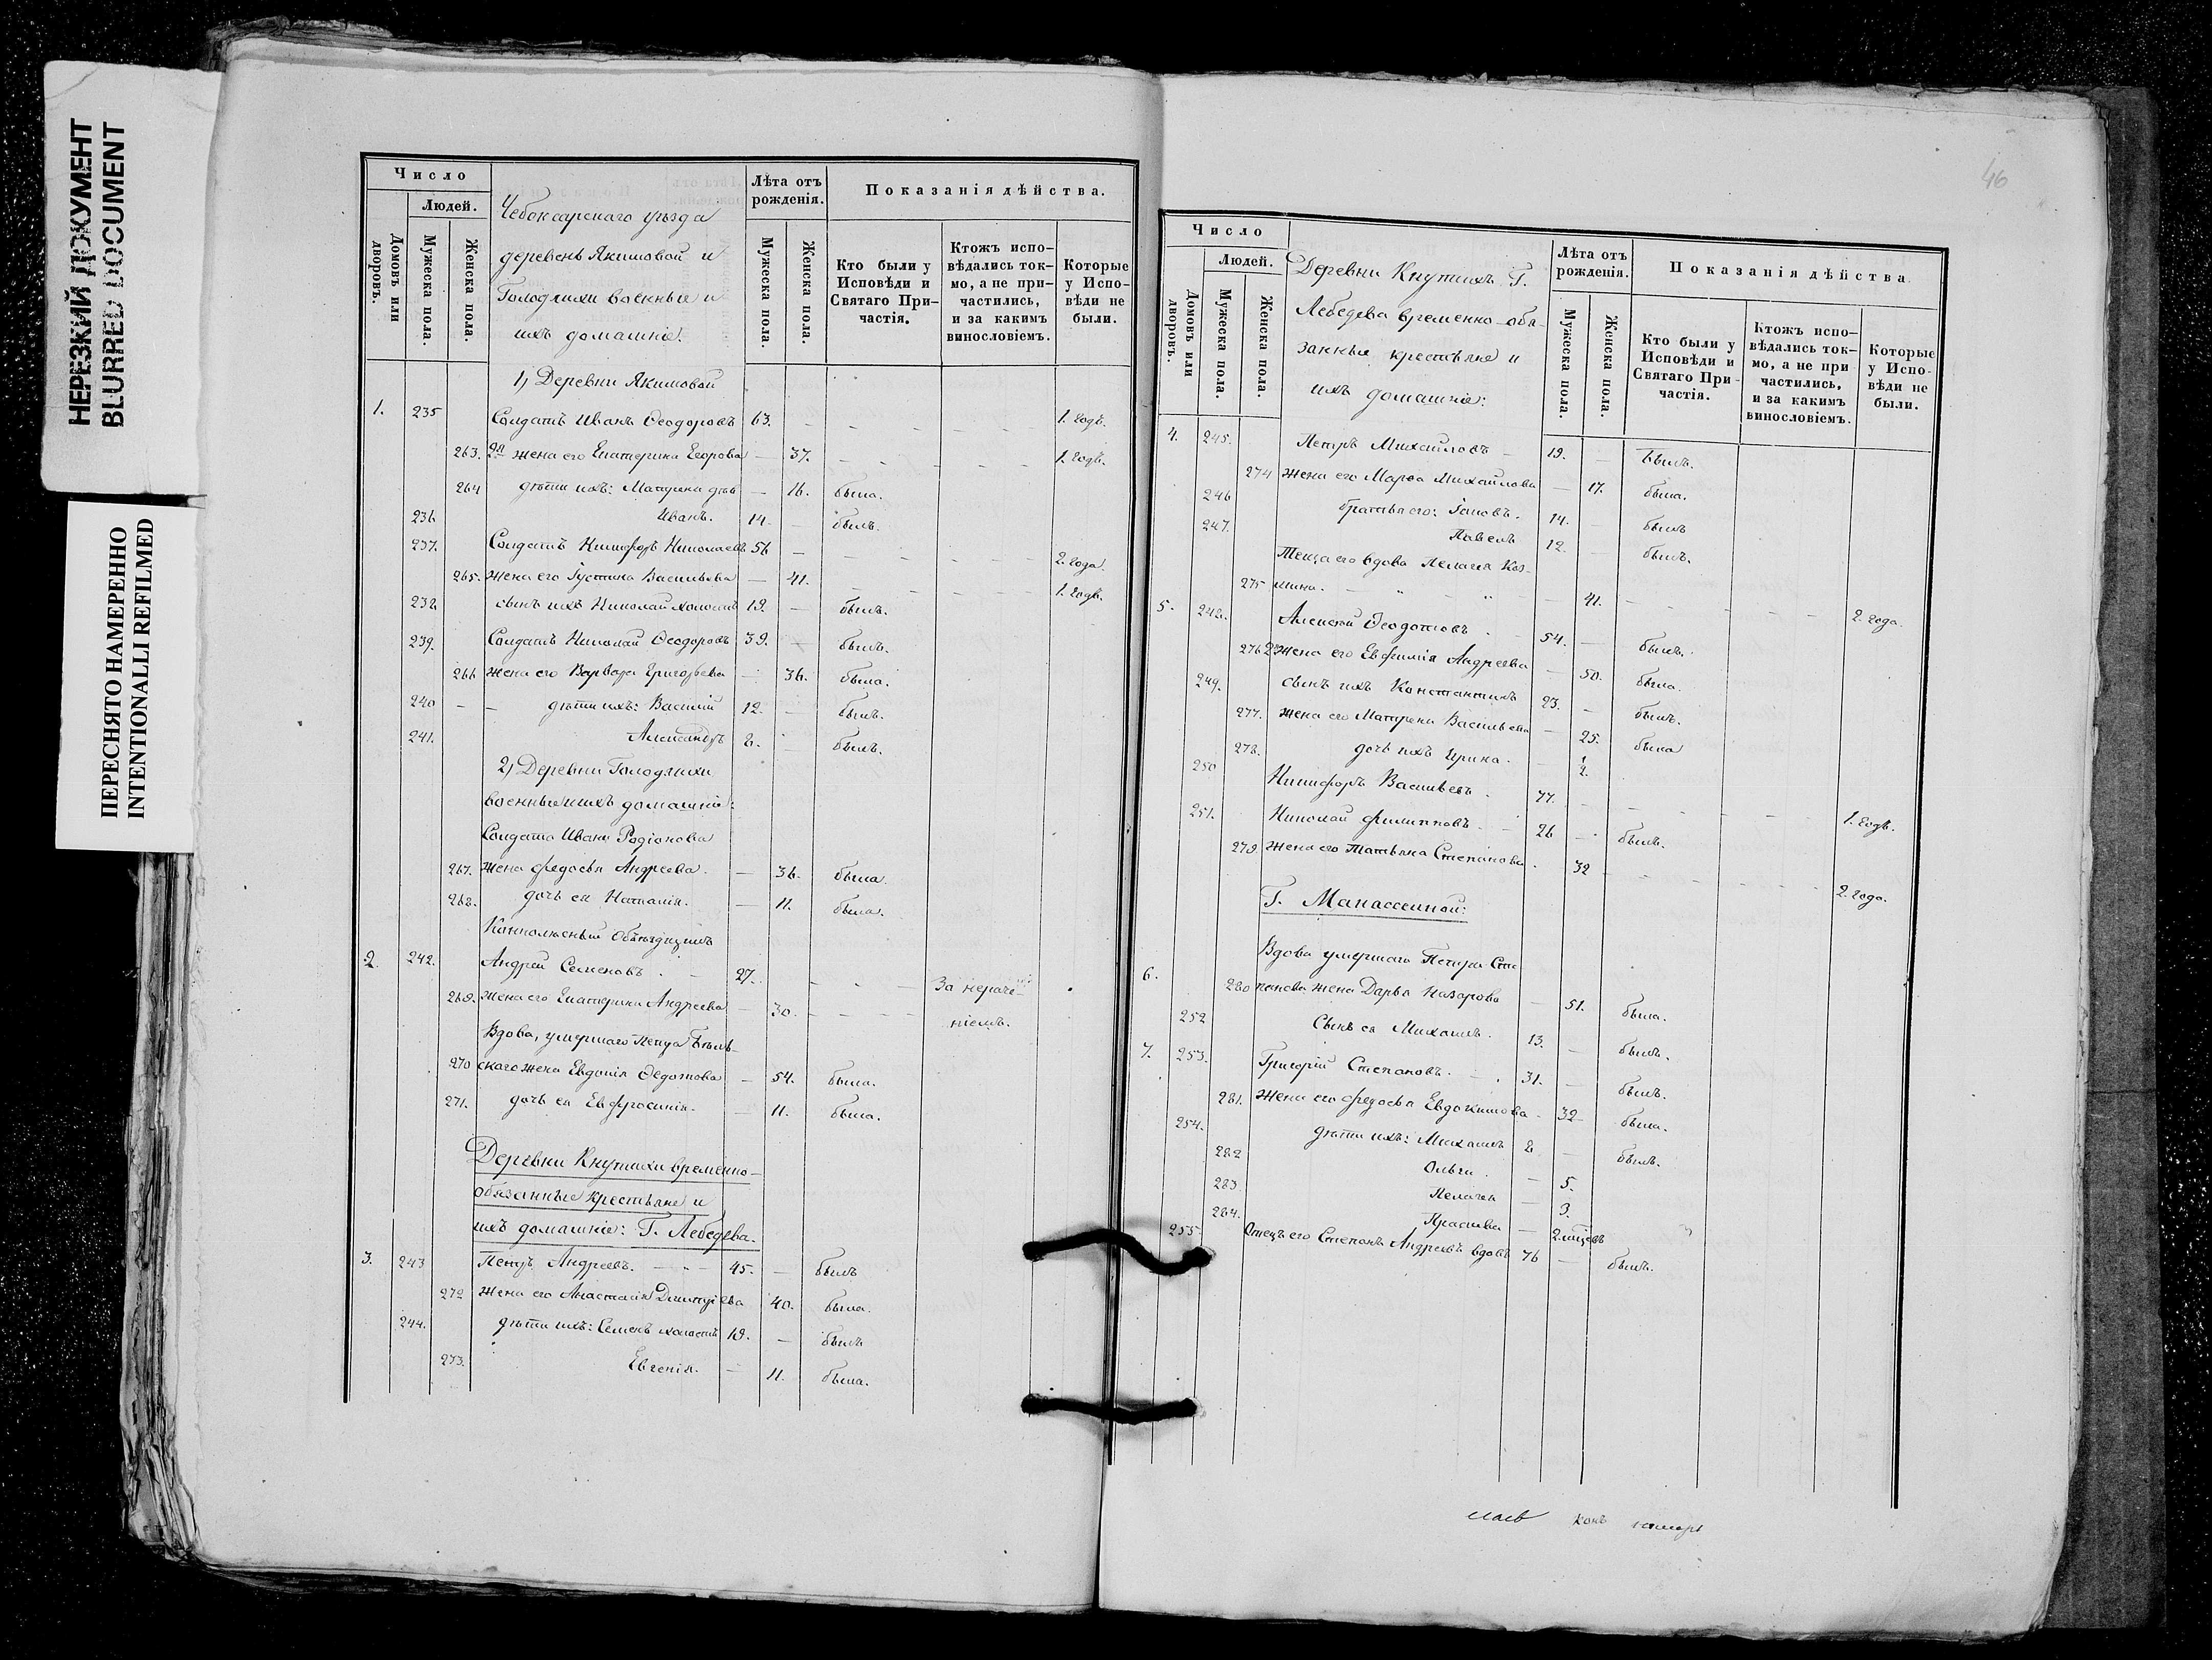 НЕРЕЗКИЙ ДОКУМЕНТ
BLURRED DOCUMENT
ПЕРЕСНЯТО НАМЕРЕННО
INTENTIONALLI REFILMED
Число
Людей.
Домовъ или дворовъ.
Мужеска пола.
Женска пола.
Чебоксарскаго уѣзда
деревень Якимовой и
Голодяихи военные и
ихъ домашніе.
Лѣта отъ рожденія.
Мужеска пола.
Женска пола.
Показанія дѣйства.
Кто были у Исповѣди и Святаго При-частія.
Ктожъ испо-вѣдались ток-мо, а не при-частились, и за какимъ винословіемъ.
Которые у Испо-вѣди не были.
1) Деревни Якимовой
1. 235 Солдатъ Иванъ Ѳеодоровъ 63. - - - - - 1. годъ.
263. 2я жена его Екатерина Егорова — 37. - - - - - 1. годъ.
264 дѣти ихъ: Матрена дѣв — 16. была.
236 Иванъ. 14. былъ.
237. Солдатъ Никифоръ Николаевъ 56 — - - - - 2. года.
265. жена его Іустина Васильева — 41. - - - - 1. годъ.
238 сынъ ихъ Николай холостъ 19. — былъ.
239. Солдатъ Николай Ѳеодоровъ 39. — былъ.
266 жена его Варвара Григорьева — 36. была.
240 — — дѣти ихъ: Василий 12. — былъ.
241. Александръ 8. — былъ.
2) Деревни Голодяихи
военные и ихъ домашніе:
Солдата Ивана Родіонова
267. жена Федосья Андреева. — 36. была.
268. дочь ея Наталія. — 11. была.
Объѣздчикъ
2. 242. Андрей Семеновъ. 27. - - - За нераче-
269. жена его Екатерина Андреева — 30. - - - ніемъ.
Вдова, умершаго Петра Бѣль-
270 скаго жена Евдокія Ѳедотова — 54. была.
271. дочь ея Евфросинія. 11. была.
Деревни Кнутихи временно-
обязанные крестьяне и
ихъ домашніе: Г. Лебедева.
3. 243 Петръ Андреевъ. 45. — былъ
272 жена его Анастасія Димитріева 40. была.
244. дѣти ихъ: Семенъ холостъ 19. — былъ
273. Евгенія. — 11. была.
46
Число
Людей.
Домовъ или дворовъ.
Мужеска пола.
Женска пола.
Деревни Кнутихъ Г.
Лебедева временно-обя-
занные крестьяне и
ихъ домашніе:
Лѣта отъ рожденія.
Мужеска пола.
Женска пола.
Показанія дѣйства.
Кто были у Исповѣди и Святаго При-частія.
Ктожъ испо-вѣдались ток-мо, а не при частились, и за какимъ винословіемъ.
Которые у Испо-вѣди не были.
4. 245. Петръ Михайловъ — 19. — былъ.
274 жена его Марѳа Михайлова — 17. была.
246 братья его: Іаковъ. 14. — былъ
247. Павелъ 12. — былъ.
Теща его вдова Пелагея Коз-
275 мина. - „ - „ — 41. - - - - 2 года.
5. 248. Алексѣй Ѳеодотовъ. 54. — былъ.
276 2я жена его Евфимія Андреева — 50. была.
249. сынъ ихъ Константинъ 23. — былъ.
277. жена его Матрена Васильева — 25. была
278. дочь ихъ Ирина. — 1/2.
250 Никифоръ Васильевъ. 77. - - - - - 1. годъ.
251. Николай Филипповъ. 26 — былъ.
279. жена его Татьяна Степанова. 32 - - - - 2. года.
Г. Манассеиной:
Вдова умершаго Петра Сте-
6. 280 панова жена Дарья Назарова — 51. была.
252 Сынъ ея Михаилъ. 13. — былъ.
7. 253. Григорій Степановъ. 31. — былъ.
281. Жена его Федосья Евдокимова - 32 была.
254. дѣти ихъ: Михаилъ 8 — былъ.
282 Ольга. — 5.
283 Пелагея — 3.
284. — 2 мѣсяц
255. Отецъ его Степанъ Андреевъ вдовъ 76 — былъ.